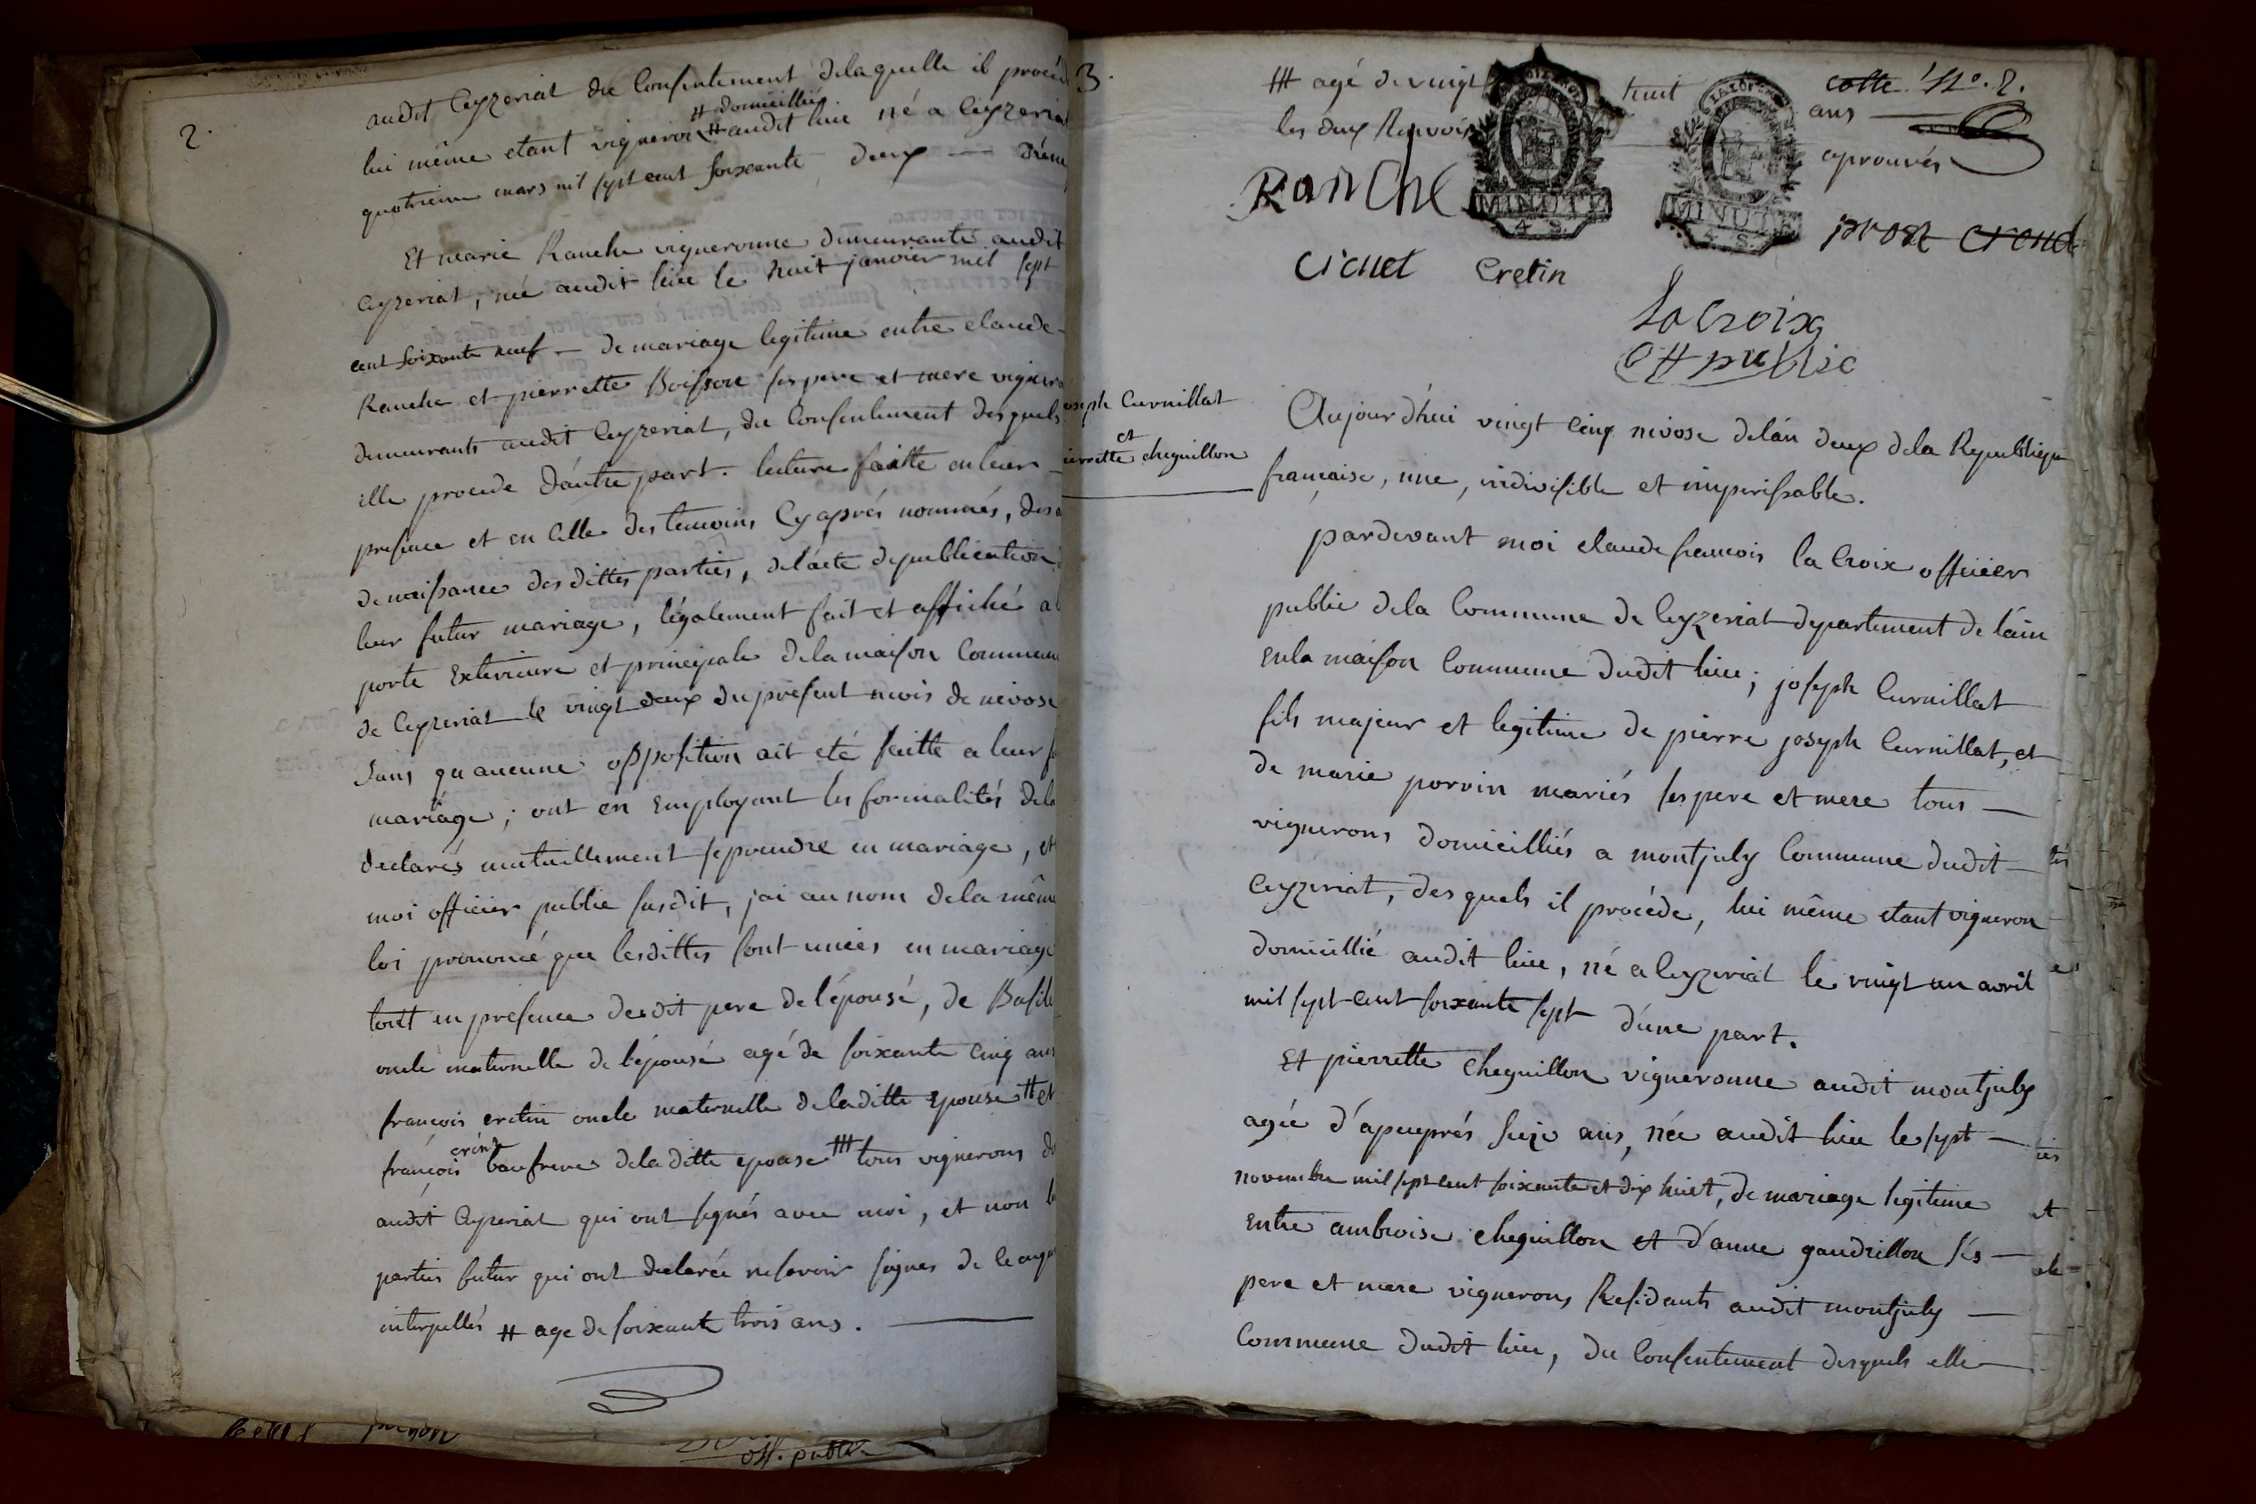 2.
audit Ceyzeriat du Consentement delaquelle il procéd
# domicillié
lui même etant vigneron # audit lieu né a Ceyzeriat
quatrieme mars mil sept cent soixante deux — d'une
Et marie Ranche vigneronne demeurante audit
Ceyzeriat, née audit lieu le huit janvier mil sept
cent soixante neuf — de mariage legitime entre claude
Ranche et pierrette Boisson ses pere et mere vigner
demeurants audit Ceyzeriat, du Consentement desquels
elle procede d'autre part. lecture faitte en leur —
presence et en celle des temoins Cy aprés nommés, des
de naissance des dittes parties, de l'acte de publication
leur futur mariage, légalement fait et affiché a l
porte Exterieure et principale dela maison Commune
de Ceyzeriat le vingt deux du présent mois de nivose
sans qu aucune opposition ait eté faitte a leur
mariage; ont en Employant les formalités dela
declarés mutuellement se prendre en mariage, et
moi officier public susdit, j'ai au nom dela même
loi prononcé que lesdittes sont unies en mariage
tout en presence dudit pere de l'épousé, de Basile
oncle maternelle de l'épousé agé de soixante cinq ans
françois cretin oncle maternelle de laditte Epouse # et
françois beaufrere de la ditte epouse ### tous vignerons
audit Ceyzeriat qui ont signés avec moi, et non l
parties futur qui ont declarée ne savoir signer de ce
interpellés # age de soixante trois ans.
off. public
3.
### agé de vingt huit ans
cotte No. 2.
les deux Renvois aprouvés
MINUTE
4. S.
MINUTE
4. S.
Ranche
prost crend
cicuet Cretin
La Croix
Off public
joseph Curnillat
et
pierrette cheguillon
Aujourd'hui vingt cinq nivose de l'an deux dela Republique
française, une, indivisible et imperissable.
pardevant moi claude francois la Croix officier
public dela Commune de Ceyzeriat departement de l'ain
en la maison Commune dudit lieu; joseph Curnillat
fils majeur et legitime de pierre joseph Curnillat, et
de marie porvin mariés ses pere et mere tous —
vignerons domicilliés a montjuly Commune dudit —
Ceyzeriat, desquels il procéde, lui même etant vigneron
domicillié audit lieu, né a Ceyzeriat le vingt un avril
mil sept cent soixante sept d'une part.
Et pierrette Cheguillon vigneronne audit montjuly
agée d'apeuprés seize ans, née audit lieu le sept —
novembre mil sept cent soixante et dix huit, de mariage legitime
Entre ambroise cheguillon et d'anne gaudillon ses —
pere et mere vignerons Residants audit montjuly —
Commune dudit lieu, du Consentement desquels elle